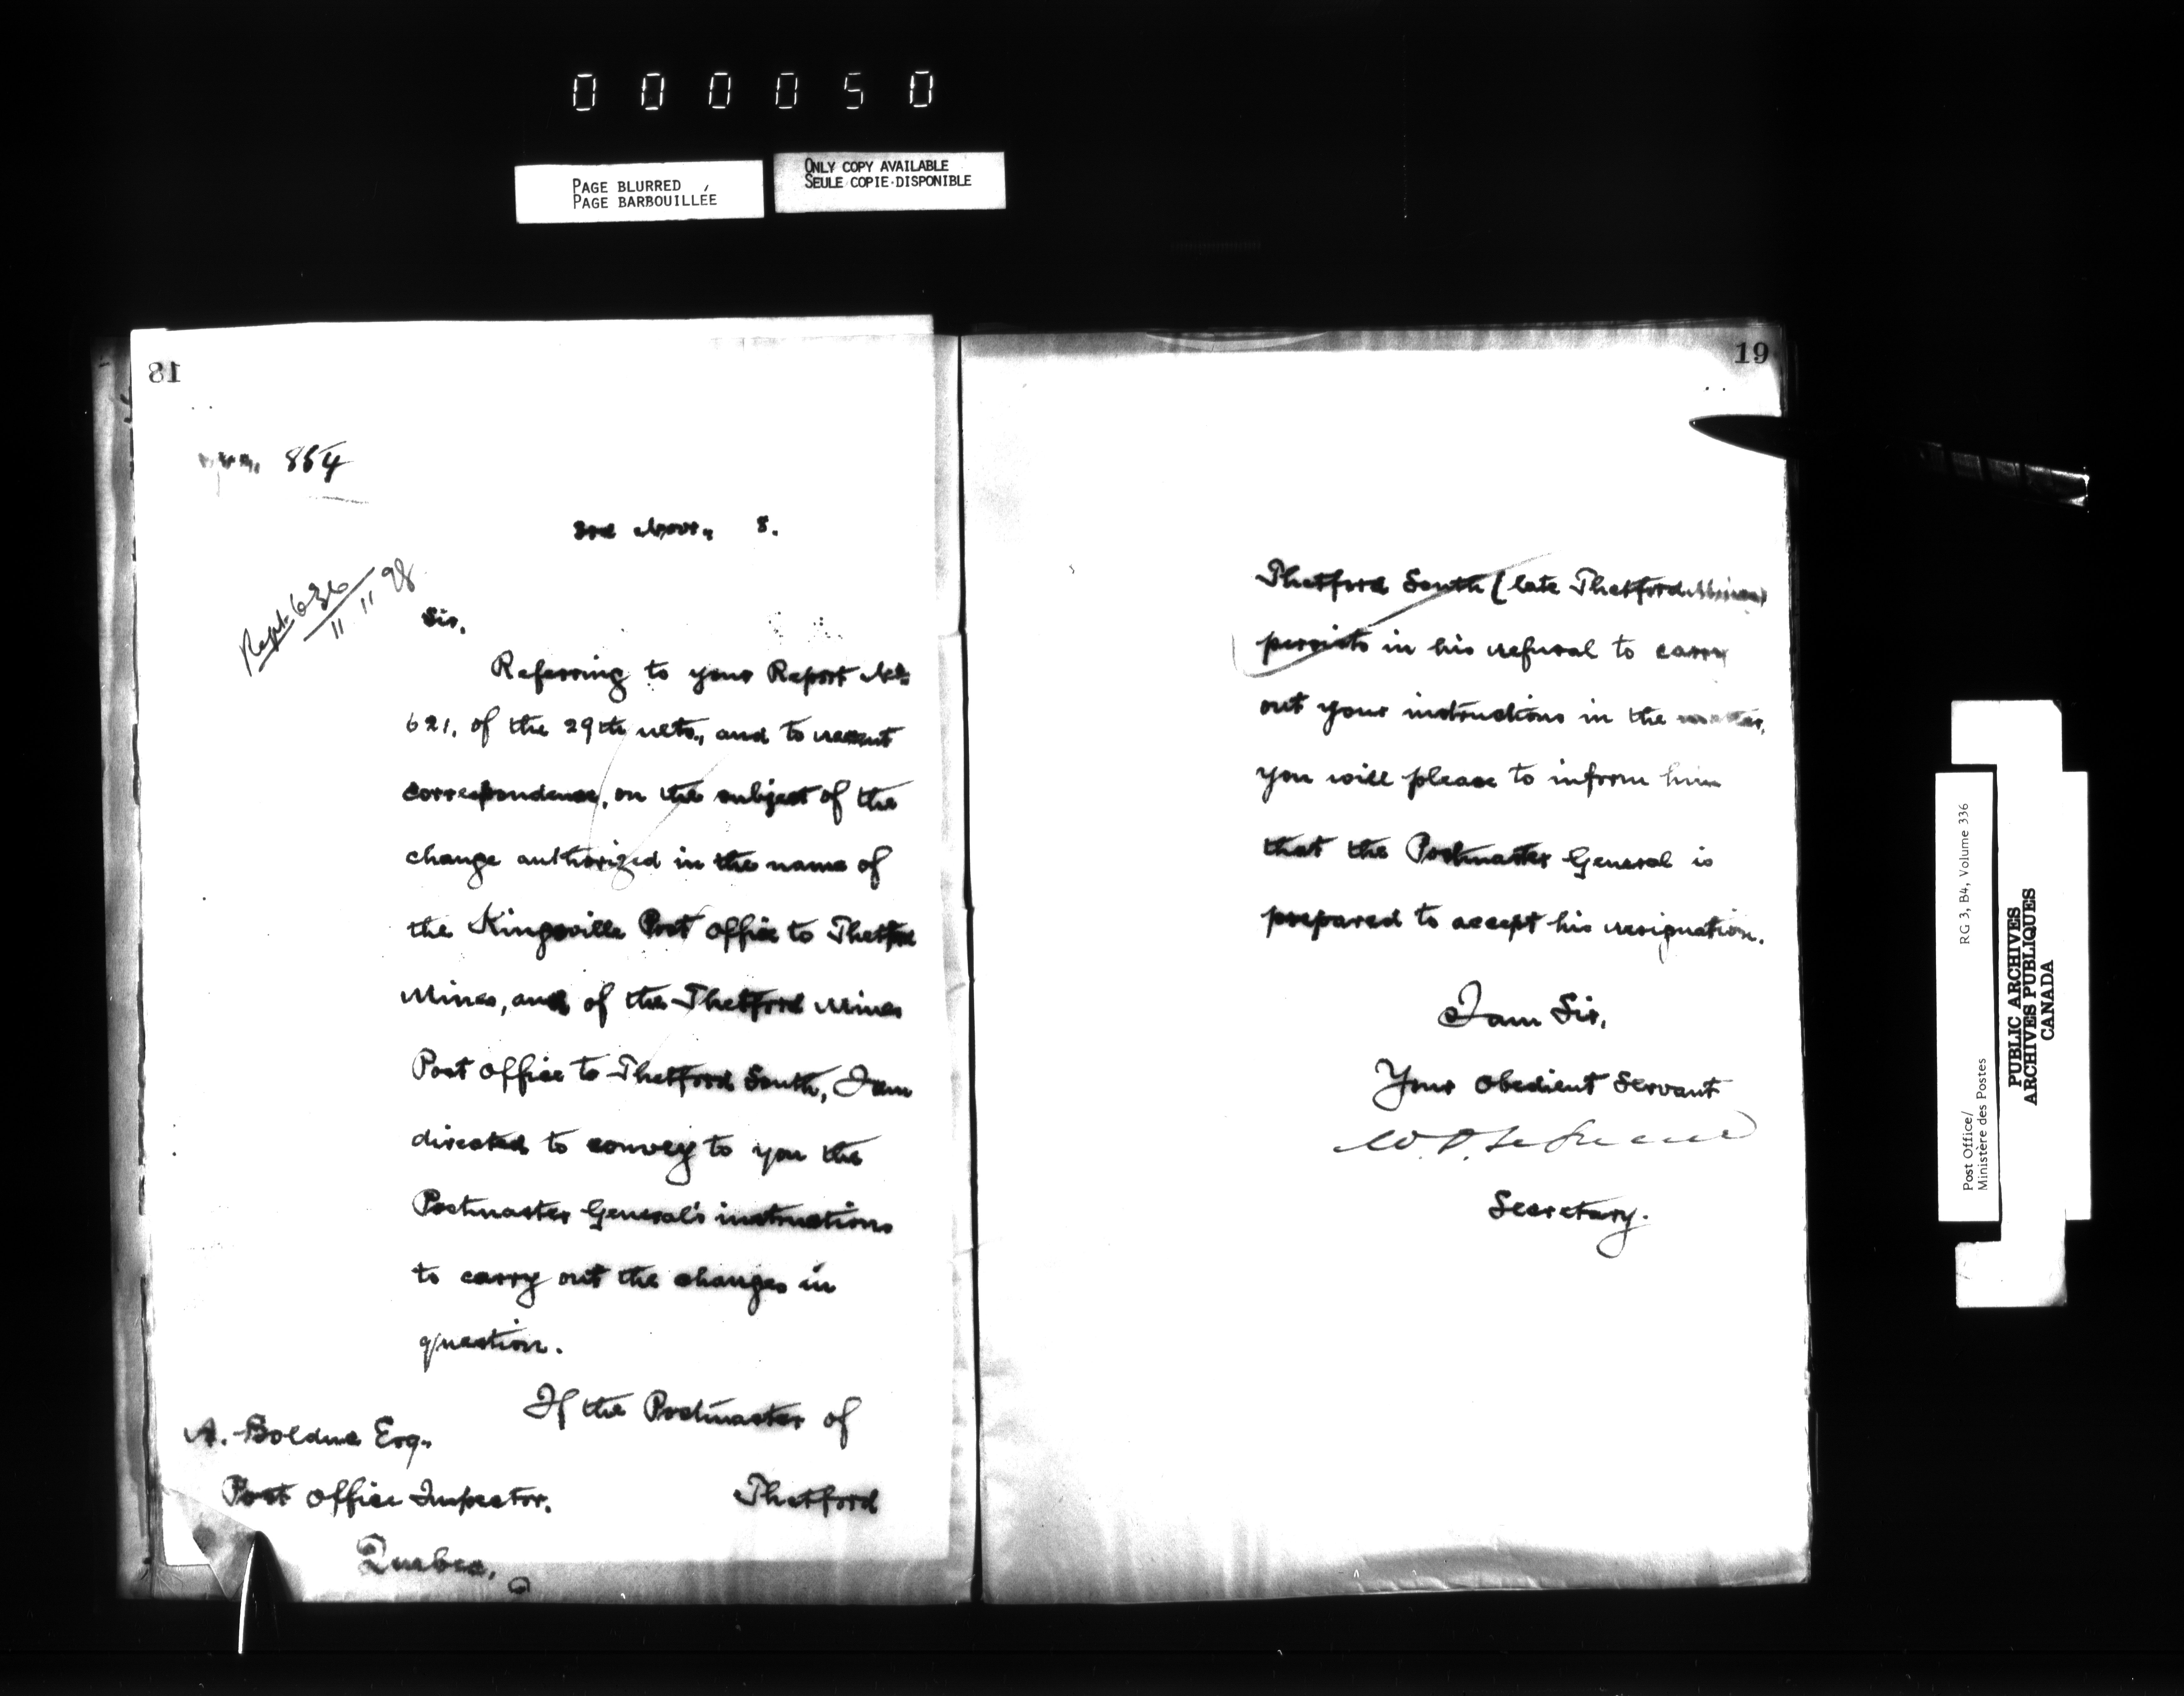 000050
PAGE BLURRED
PAGE BARBOUILLÉE
ONLY COPY AVAILABLE
SEULE COPIE DISPONIBLE
18
854
3rd Novr., 8.
Rept. 636
11.11.98
Sir,
Referring to your Report No.
621, of the 29th ulto., and to recent
correspondence, on the subject of the
change authorized in the name of
the Kingsville Post Office to Thetford
Mines, and of the Thetford Mines
Post Office to Thetford South, I am
directed to convey to you the
Postmaster General's instructions
to carry out the changes in
question.
If the Postmaster of
A. Bolduc Esq.
Post Office Inspector.
Thetford
Quebec.
19
Thetford South (late Thetford Mines)
persists in his refusal to carry
out your instructions in the matter,
you will please to inform him
that the Postmaster General is
prepared to accept his resignation.
I am Sir,
Your Obedient Servant
Secretary.
Post Office/
Ministère des Postes
RG 3, B4, Volume 336
PUBLIC ARCHIVES
ARCHIVES PUBLIQUES
CANADA